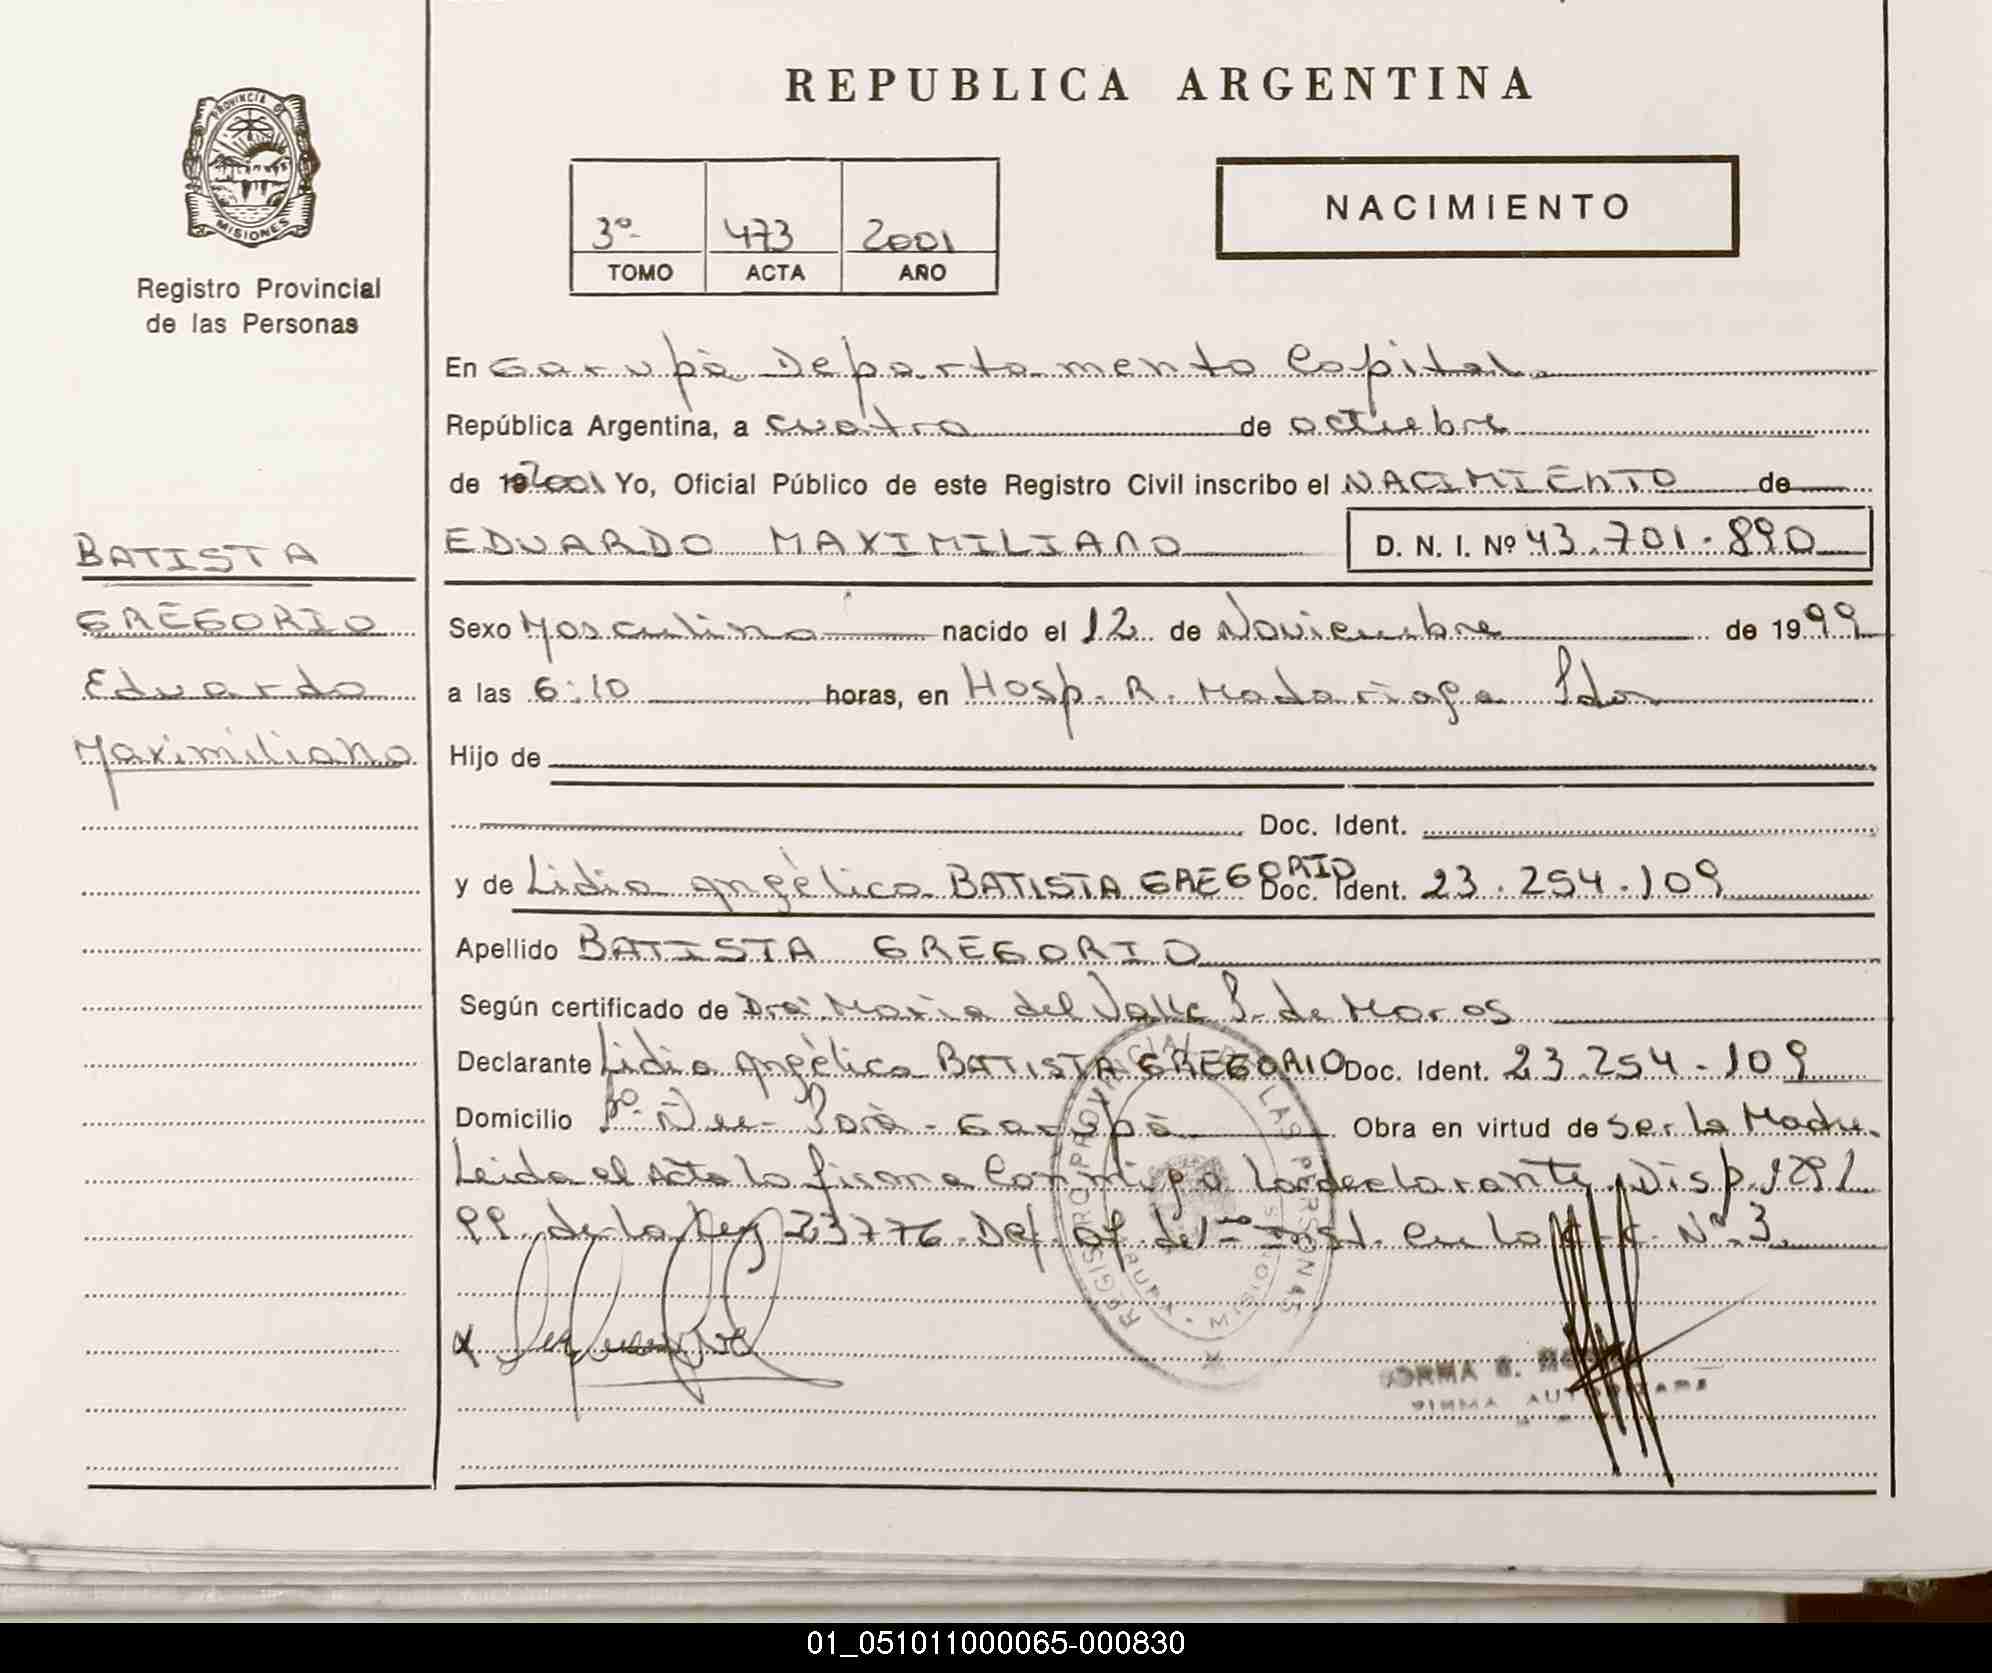 REPUBLICA ARGENTINA
PROVINCIA DE
MISIONES
Registro Provincial
de las Personas
3º 473 2001
TOMO ACTA AÑO
NACIMIENTO
En Garupà Departamento Capital.
República Argentina, a cuatro de octubre
de 192001 Yo, Oficial Público de este Registro Civil inscribo el NACIMIENTO de
EDUARDO MAXIMILIANO D. N. I. Nº 43.701.890
BATISTA
GREGORIO
Eduardo
Maximiliano
Sexo Masculino nacido el 12 de Noviembre de 1999
a las 6:10 horas, en Hosp. R. Madariaga Pdas
Hijo de
Doc. Ident.
y de Lidia Angèlica BATISTA GREGORIO Doc. Ident. 23.254.109
Apellido BATISTA GREGORIO
Según certificado de Dra Maria del Valle P. de Maros
Declarante Lidia Angèlica BATISTA GREGORIO Doc. Ident. 23.254.109
Domicilio Bº Ñu Porà - Garupà Obra en virtud de ser la Madre.
Leida el Acta la firma Conmigo la declarante. Disp. 1291
99 de la Ley 23776 Def. Of. de 1ra Inst. en lo C. C. Nº 3
REGISTRO PROVINCIAL DE LAS PERSONAS
MISIONES
NORMA
FIRMA AUTORIZADA
01_051011000065-000830